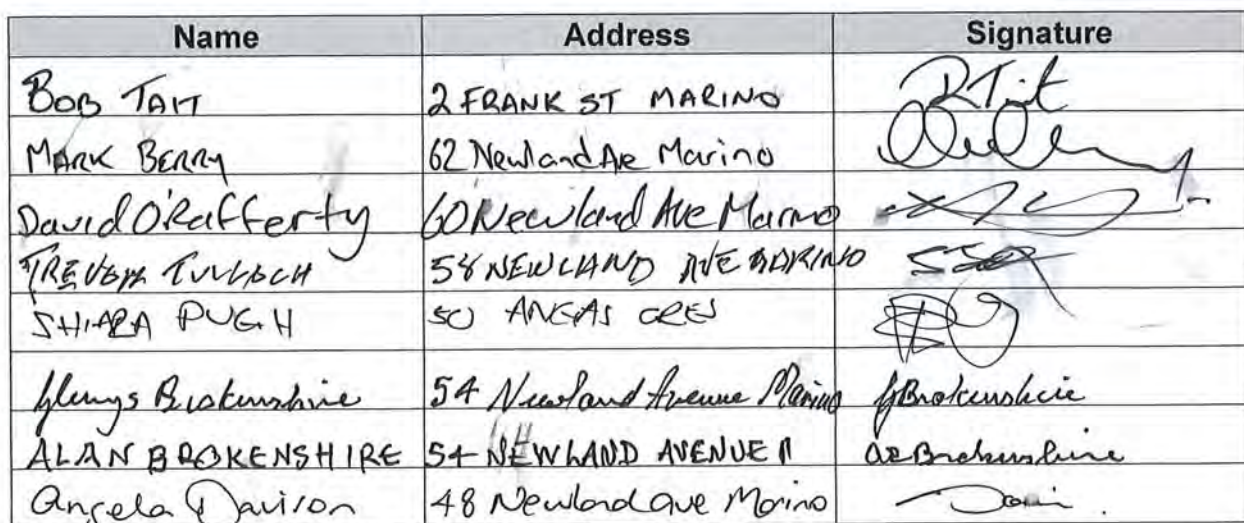 Name Address Signature
BOB TAIT 2 FRANK ST MARINO RTait
MARK BERRY 62 Newland Ave Marino
David O'Rafferty 60 Newland Ave Marino
TREVOR TULLOCH 58 NEWLAND AVE MARINO
SHIARA PUGH 50 ANGAS CRES
Glenys Brokenshire 54 Newland Avenue Marino GBrokenshire
ALAN BROKENSHIRE 54 NEWLAND AVENUE M aeBrokenshire
Angela Davison 48 Newland Ave Marino